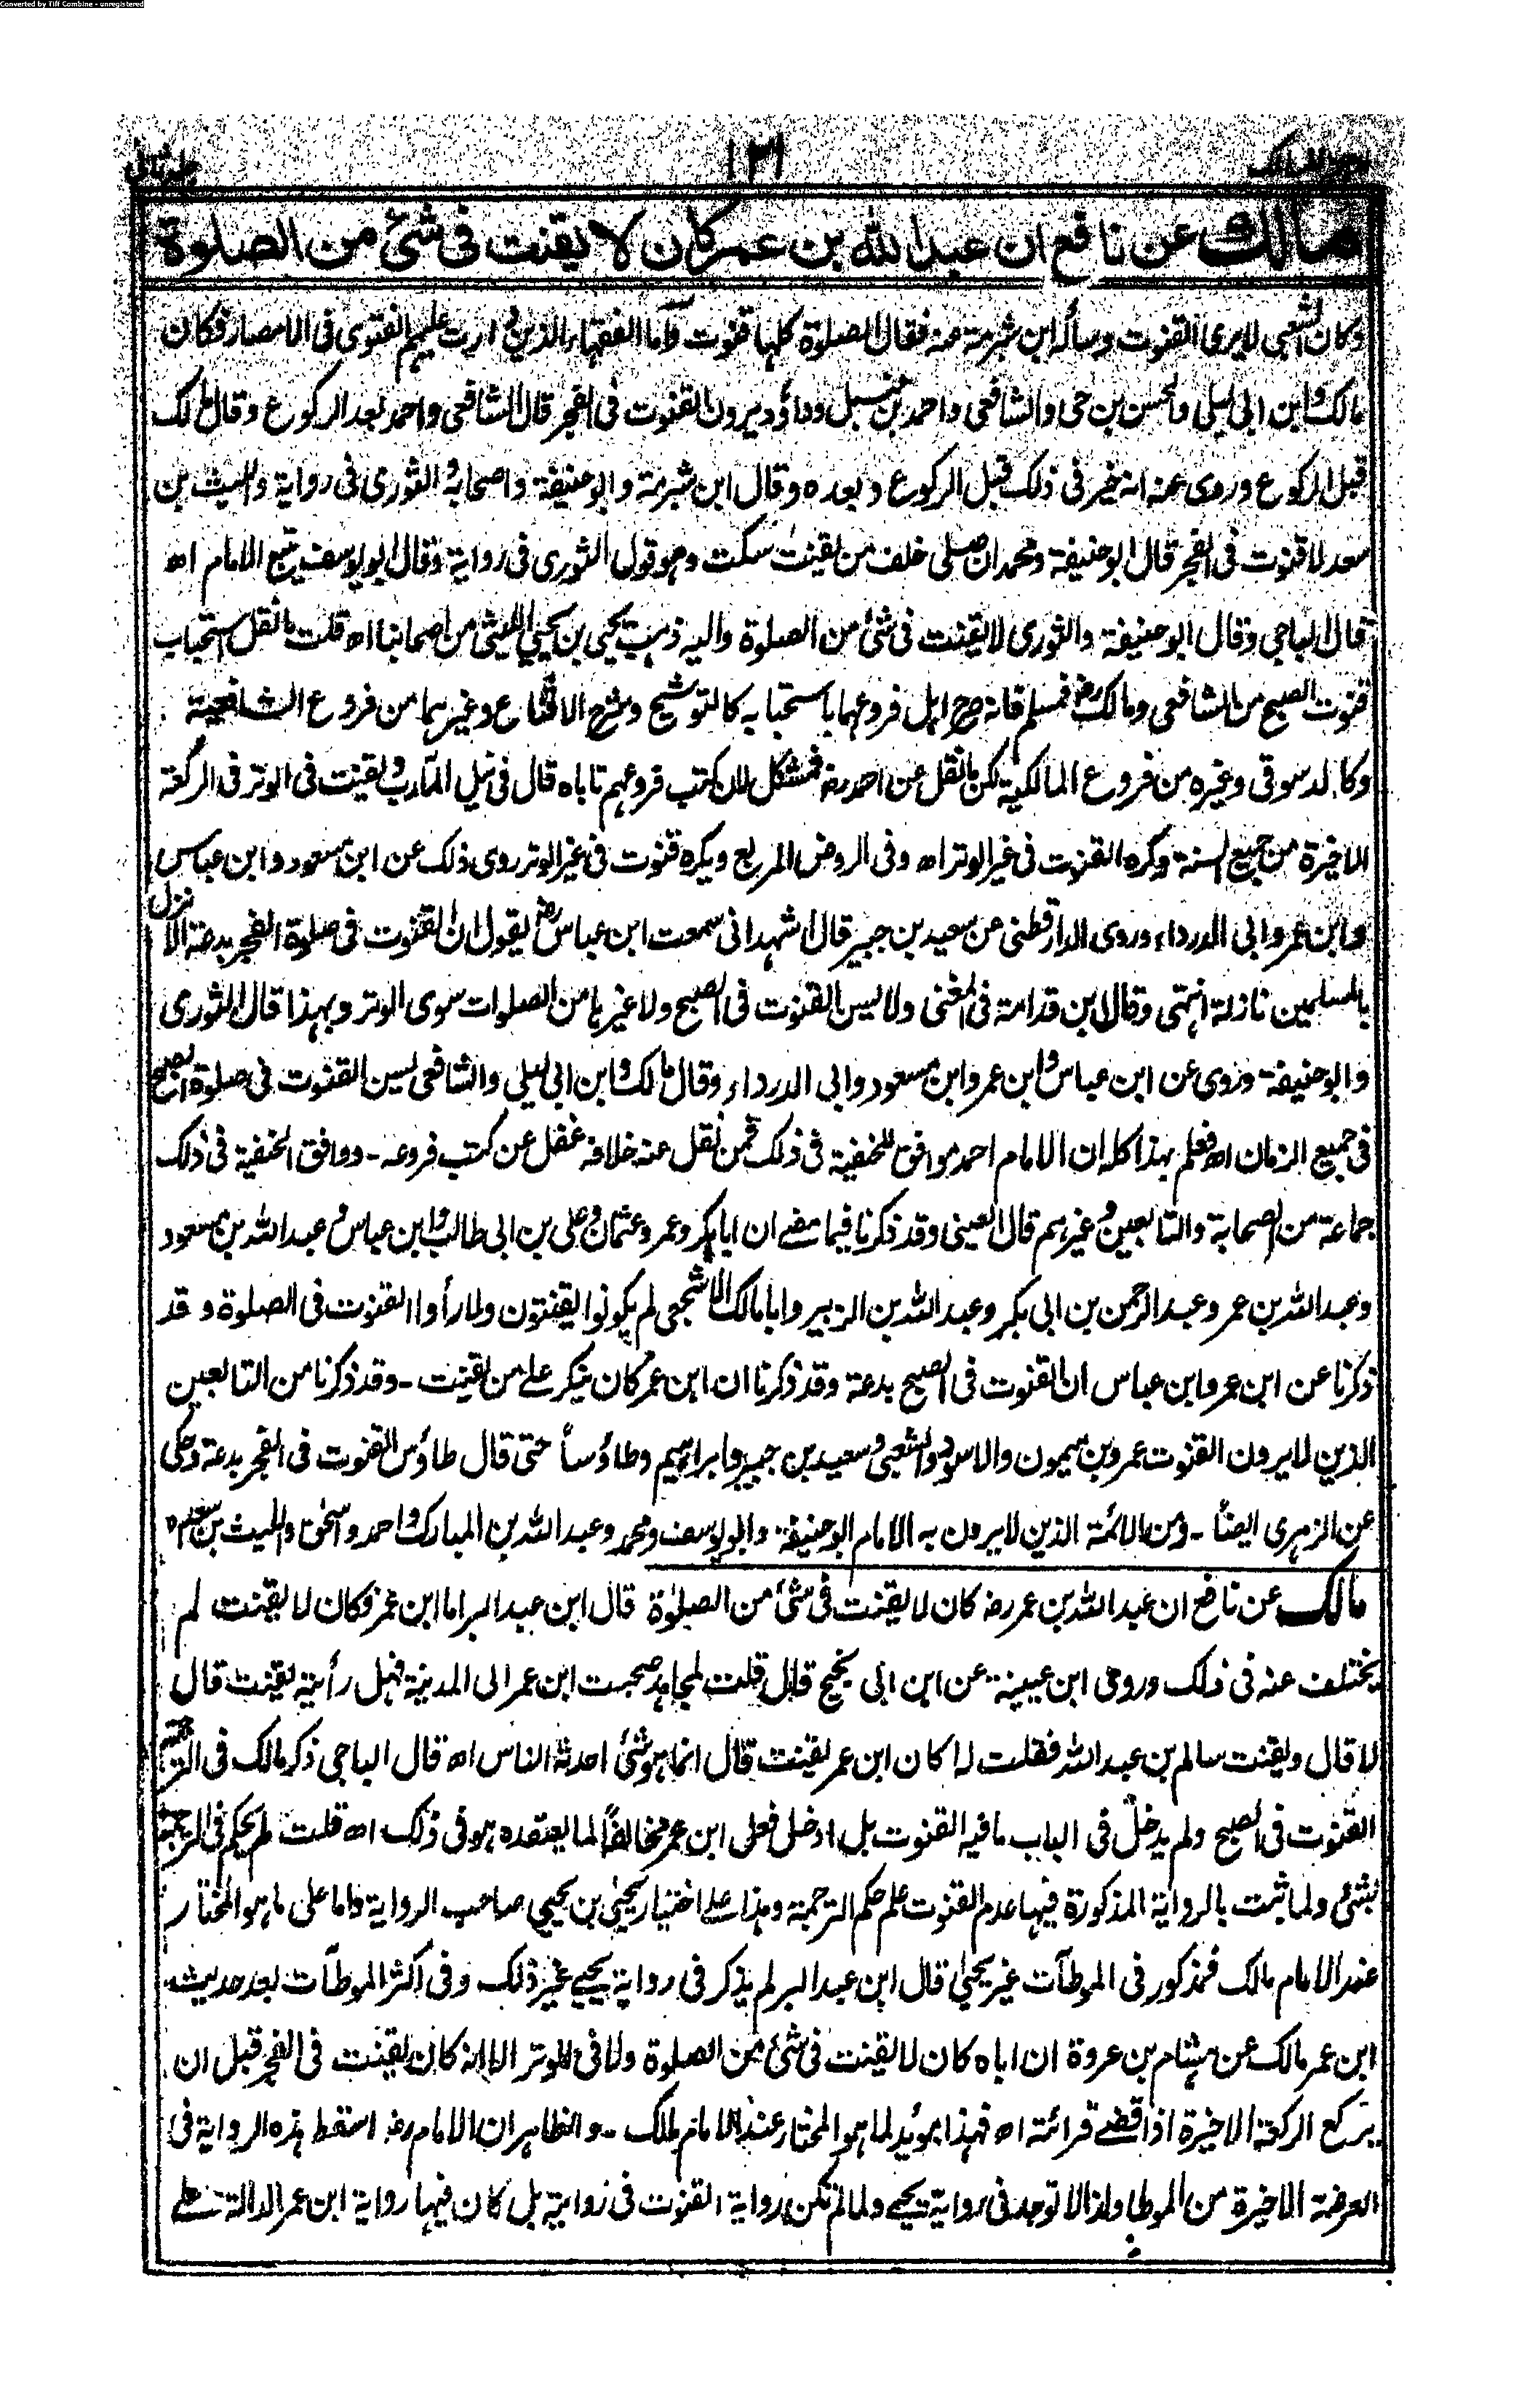 Converted by Tiff Combine - unregistered
اوجز المسالك ١٣١ جلد ثانی
مالك عن نافع ان عبد الله بن عمر كان لا يقنت فی شئ من الصلوة
وكان الشعبی لا يری القنوت وسأله ابن شبرمة عنه فقال الصلوة كلها قنوت واما الفقهاء الذين دارت عليهم الفتوی فی الامصار فكان
مالك وابن ابی ليلی والحسن بن حی والشافعی واحمد بن حنبل وداؤد يرون القنوت فی الفجر قال الشافعی واحمد بعد الركوع وقال مالك
قبل الركوع وروی عنه انه خير فی ذلك قبل الركوع وبعده وقال ابن شبرمة وابو حنيفة واصحابه والثوری فی رواية والليث بن
سعد لا قنوت فی الفجر قال ابو حنيفة ومحمد ان صلی خلف من يقنت سكت وهو قول الثوری فی رواية وقال ابو يوسف يتبع الامام اه
قال الباجی وقال ابو حنيفة والثوری لا يقنت فی شئ من الصلوة واليه ذهب يحيی بن يحيی الليثی من اصحابنا اه قلت ما نقل استحباب
قنوت الصبح من الشافعی ومالك رضـ فمسلم فانه صرح اهل فروعهما باستحبابه كالتوشيح وشرح الاقناع وغيرهما من فروع الشافعية
وكالدسوقی وغيره من فروع المالكية لكن ما نقل عن احمد رضـ فمشكل لان كتب فروعهم تاباه قال فی نيل المآرب ويقنت فی الوتر فی الركعة
الاخيرة من جميع السنة وكره القنوت فی غير الوتر اه وفی الروض المربع ويكره قنوت فی غير الوتر روی ذلك عن ابن مسعود وابن عباس
وابن عمر وابی الدرداء وروی الدارقطنی عن سعيد بن جبير قال اشهد انی سمعت ابن عباس رضـ يقول ان القنوت فی صلوة الفجر بدعة الا نزل
بالمسلمين نازلة انتهی وقال ابن قدامة فی المغنی ولا يسن القنوت فی الصبح ولا غيرها من الصلوات سوی الوتر وبهذا قال الثوری
وابو حنيفة وروی عن ابن عباس وابن عمر وابن مسعود وابی الدرداء وقال مالك وابن ابی ليلی والشافعی يسن القنوت فی صلوة الصبح
فی جميع الزمان اه فعلم بهذا كله ان الامام احمد موافق للحنفية فی ذلك فمن نقل عنه خلافه غفل عن كتب فروعه - ووافق الحنفية فی ذلك
جماعة من الصحابة والتابعين وغيرهم قال العينی وقد ذكرنا فيما مضے ان ابا بكر وعمر وعثمان وعلی بن ابی طالب وابن عباس وعبد الله بن مسعود
وعبد الله بن عمر وعبد الرحمن بن ابی بكر وعبد الله بن الزبير وابا مالك الاشجعی لم يكونوا يقنتون ولا رأوا القنوت فی الصلوة وقد
ذكرنا عن ابن عمر وابن عباس ان القنوت فی الصبح بدعة وقد ذكرنا ان ابن عمر كان ينكر علے من يقنت - وقد ذكرنا من التابعين
الذين لا يرون القنوت عمرو بن ميمون والاسود والشعبی وسعيد بن جبير وابراهيم وطاؤسا حتی قال طاؤس القنوت فی الفجر بدعة وحكی
عن الزهری ايضًا - ومن الائمة الذين لا يرون به الامام ابو حنيفة وابو يوسف ومحمد وعبد الله بن المبارك واحمد واسحٰق والليث بن سعد اه
مالك عن نافع ان عبد الله بن عمر رضـ كان لا يقنت فی شئ من الصلوٰة قال ابن عبد البر اما ابن عمر فكان لا يقنت لم
يختلف عنه فی ذلك وروی ابن عيينة عن ابن ابی نجيح قال قلت لمجاهد صحبت ابن عمر الی المدينة فهل رأيته يقنت قال
لا قال ولقيت سالم بن عبد الله فقلت له اكان ابن عمر يقنت قال انما هو شئ احدثه الناس اه قال الباجی ذكر مالك فی الترجمة
القنوت فی الصبح ولم يدخل فی الباب ما فيه القنوت بل ادخل فعل ابن عمر مخالفًا لما يعتقده هو فی ذلك اه قلت لم يحكم فی الترجمة
بشئ ولما ثبت بالرواية المذكورة فيها عدم القنوت علم حكم الترجمة وهذا علے اختيار يحيیٰ بن يحيی صاحب الرواية واما علی ما هو المختار
عند الامام مالك فمذكور فی الموطآت غير يحيیٰ قال ابن عبد البر لم يذكر فی رواية يحيے غير ذلك وفی اكثر الموطآت بعد حديث
ابن عمر مالك عن هشام بن عروة ان اباه كان لا يقنت فی شئ من الصلوة ولا فی الوتر الا انه كان يقنت فی الفجر قبل ان
يركع الركعة الاخيرة اذا قضے قرائته اه فهذا مؤيد لما هو المختار عند الامام مالك - والظاهر ان الامام رضـ اسقط هذه الرواية فی
العرضة الاخيرة من الموطا ولذا لا توجد فی رواية يحيے ولما لم تكن رواية القنوت فی رواية بل كان فيها رواية ابن عمر الدالة علے